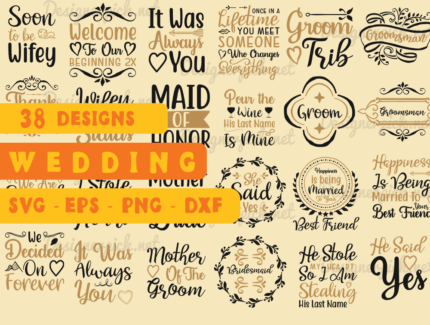 Soon
to be
Wifey
Welcome
To Our
BEGINNING 2X
It Was
Always
You
ONCE IN A
Lifetime
YOU MEET
SOMEONE
Who Changes
Everything
Groom
Trib
Groomsman
38 DESIGNS
WEDDING
SVG - EPS - PNG - DXF
Thank
Wifey
MAID
OF
HONOR
Pour the
Wine
His Last Name
Is Mine
Groom
Groomsman
We Are
Stole
Mother
She
Said
Yes
Happiness
is being
Married
To Your
Best Friend
Happiness
Is Being
Married To
Your
Best Friend
We
Decided
On
Forever
It Was
Always
You
Mother
Of The
Groom
Bridesmaid
He Stole
MY HEART
So I Am
Stealing
His Last Name
He Said
Yes
Designtrick.net